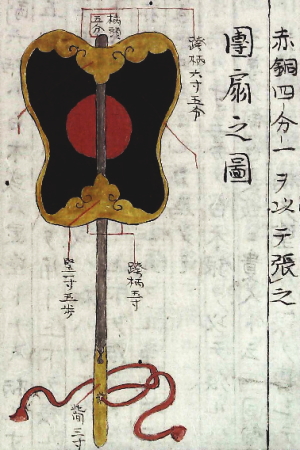 赤銅四分一ヲ以テ張之
團扇之圖
柄六寸五分
柄頭
五分
柄五寸
一寸五歩
三寸